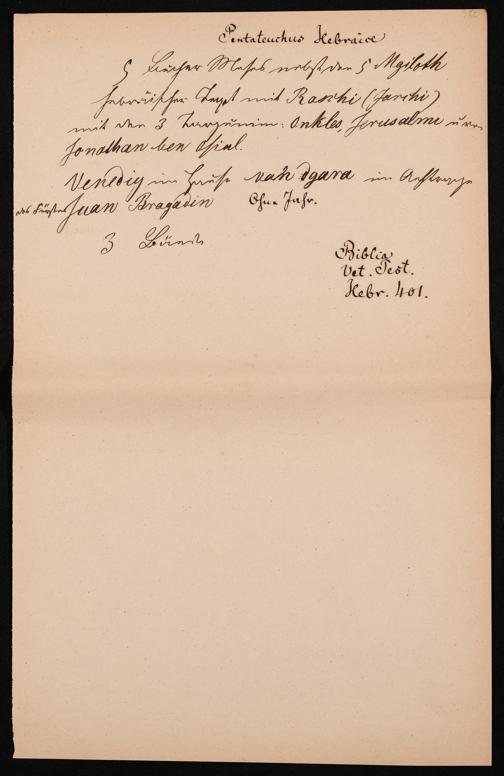 Pentateuchus Hebraice
5 Bücher Moses nebst den 5 Mgiloth
hebräischer Text mit Raschi (Jarchi)
mit den 3 Targumim: Onkles, Jerusalme u von
Jonathan ben Usial.
Venedig im Hause vah dgara im Auftrage
des Fürsten Juan Bragadin Ohne Jahr.
3 Bände
Biblia
Vet. Test.
Hebr. 401.